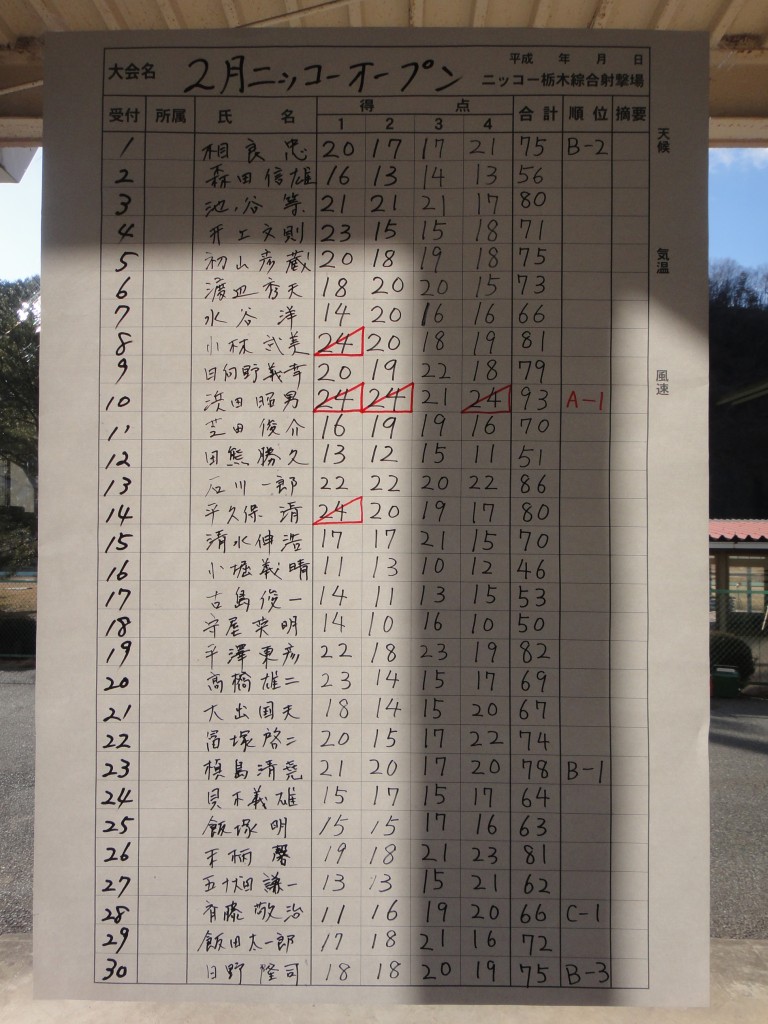 平成 年 月 日
大会名 2月ニッコーオープン ニッコー栃木綜合射撃場
受付 所属 氏 名 得 点 合計 順位 摘要
1 2 3 4
天候
気温
風速
1 相良 忠 20 17 17 21 75 B-2
2 森田信雄 16 13 14 13 56
3 池谷 等 21 21 21 17 80
4 井上文則 23 15 15 18 71
5 初山彦蔵 20 18 19 18 75
6 渡辺秀夫 18 20 20 15 73
7 水谷 洋 14 20 16 16 66
8 小林武美 24 20 18 19 81
9 日向野義幸 20 19 22 18 79
10 浜田昭男 24 24 21 24 93 A-1
11 芝田俊介 16 19 19 16 70
12 田熊勝久 13 12 15 11 51
13 石川一郎 22 22 20 22 86
14 平久保 清 24 20 19 17 80
15 清水伸浩 17 17 21 15 70
16 小堀義晴 11 13 10 12 46
17 古島俊一 14 11 13 15 53
18 守屋英明 14 10 16 10 50
19 平澤東彦 22 18 23 19 82
20 高橋雄二 23 14 15 17 69
21 大出国夫 18 14 15 20 67
22 冨塚啓二 20 15 17 22 74
23 槙島清堯 21 20 17 20 78 B-1
24 貝木義雄 15 17 15 17 64
25 飯塚 明 15 15 17 16 63
26 馨 19 18 21 23 81
27 五十畑謙一 13 13 15 21 62
28 斉藤敬治 11 16 19 20 66 C-1
29 飯田太一郎 17 18 21 16 72
30 日野隆司 18 18 20 19 75 B-3